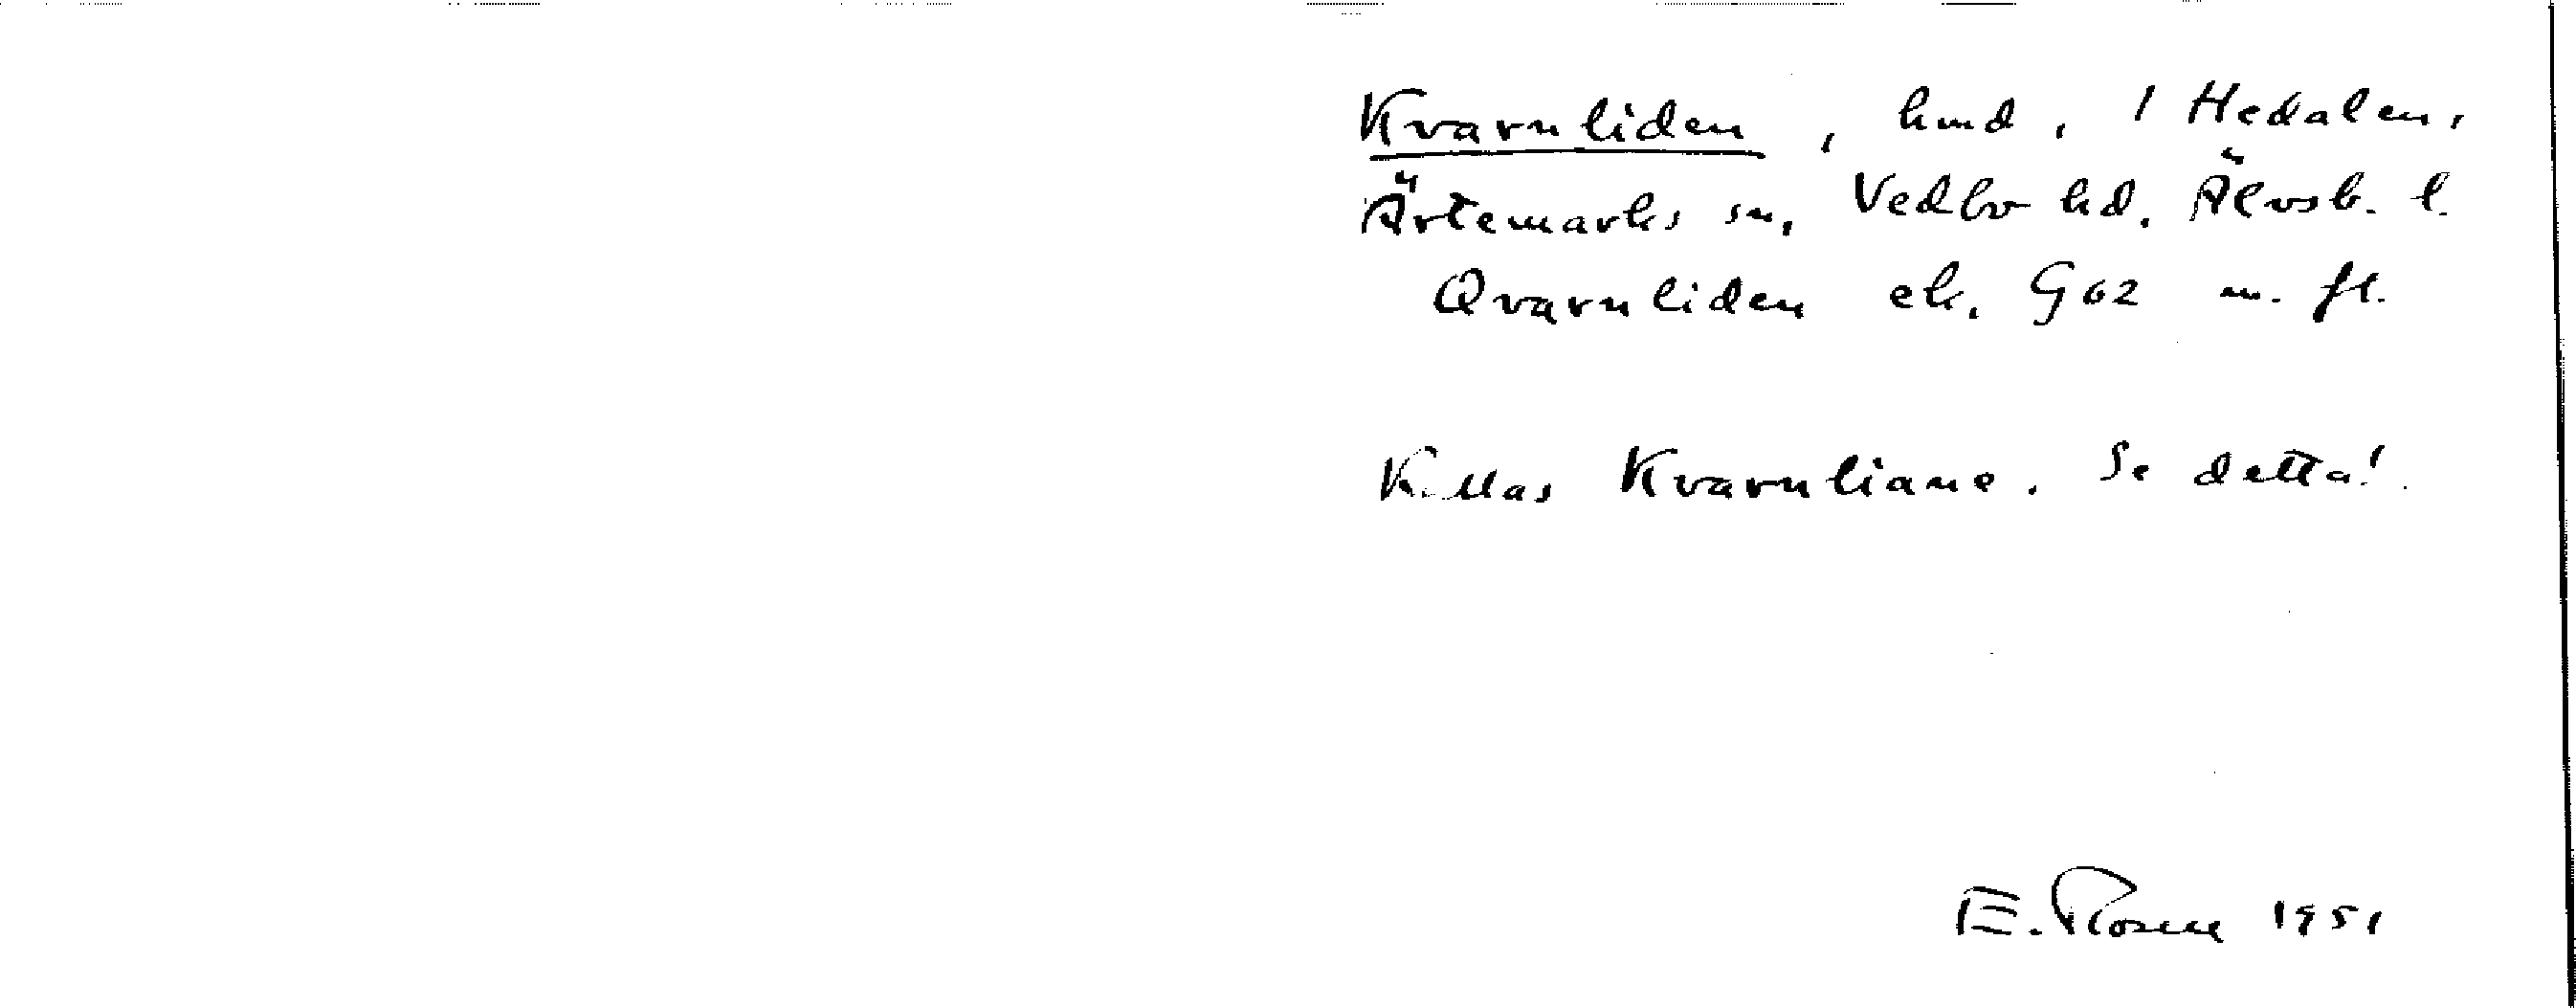 Kvarnliden, hmd, 1 Hedalen,
Ärtemarks sn, Vedbo hd. Älvsb. l.
Qvarnliden ek. G62 m. fl.
Kallas Kvarnliane. Se detta!
E. Rosell 1951